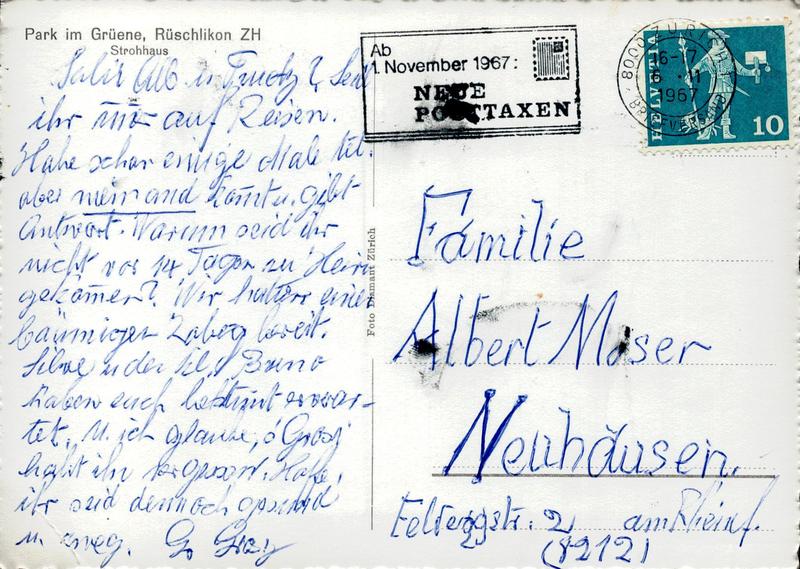 Park im Grüene, Rüschlikon ZH
Strohhaus
Ab
1. November 1967:
NEUE
POSTTAXEN
8000 ZÜRICH
16-17
6.11
1967
BRIEFVERSAND
HELVETIA
10
Salü Alb u Trudy? Seid
ihr immer auf Reisen.
Habe schon einige Male tel.
aber niemand kommt u. gibt
Antwort. Warum seid ihr
nicht vor 14 Tagen zu Heini
gekommen? Wir hatten einen
bäumigen Zabig bereit.
u der Bruno
haben euch bestimmt erwar-
tet. U. ich glaube, s'Grosi
habt ihr vergessen. Hoffe,
ihr seid dennoch gesund
u. zweg. Gr.
Foto Diamant Zürich
Familie
Albert Moser
Neuhausen.
am Rheinf.
2
(8212)